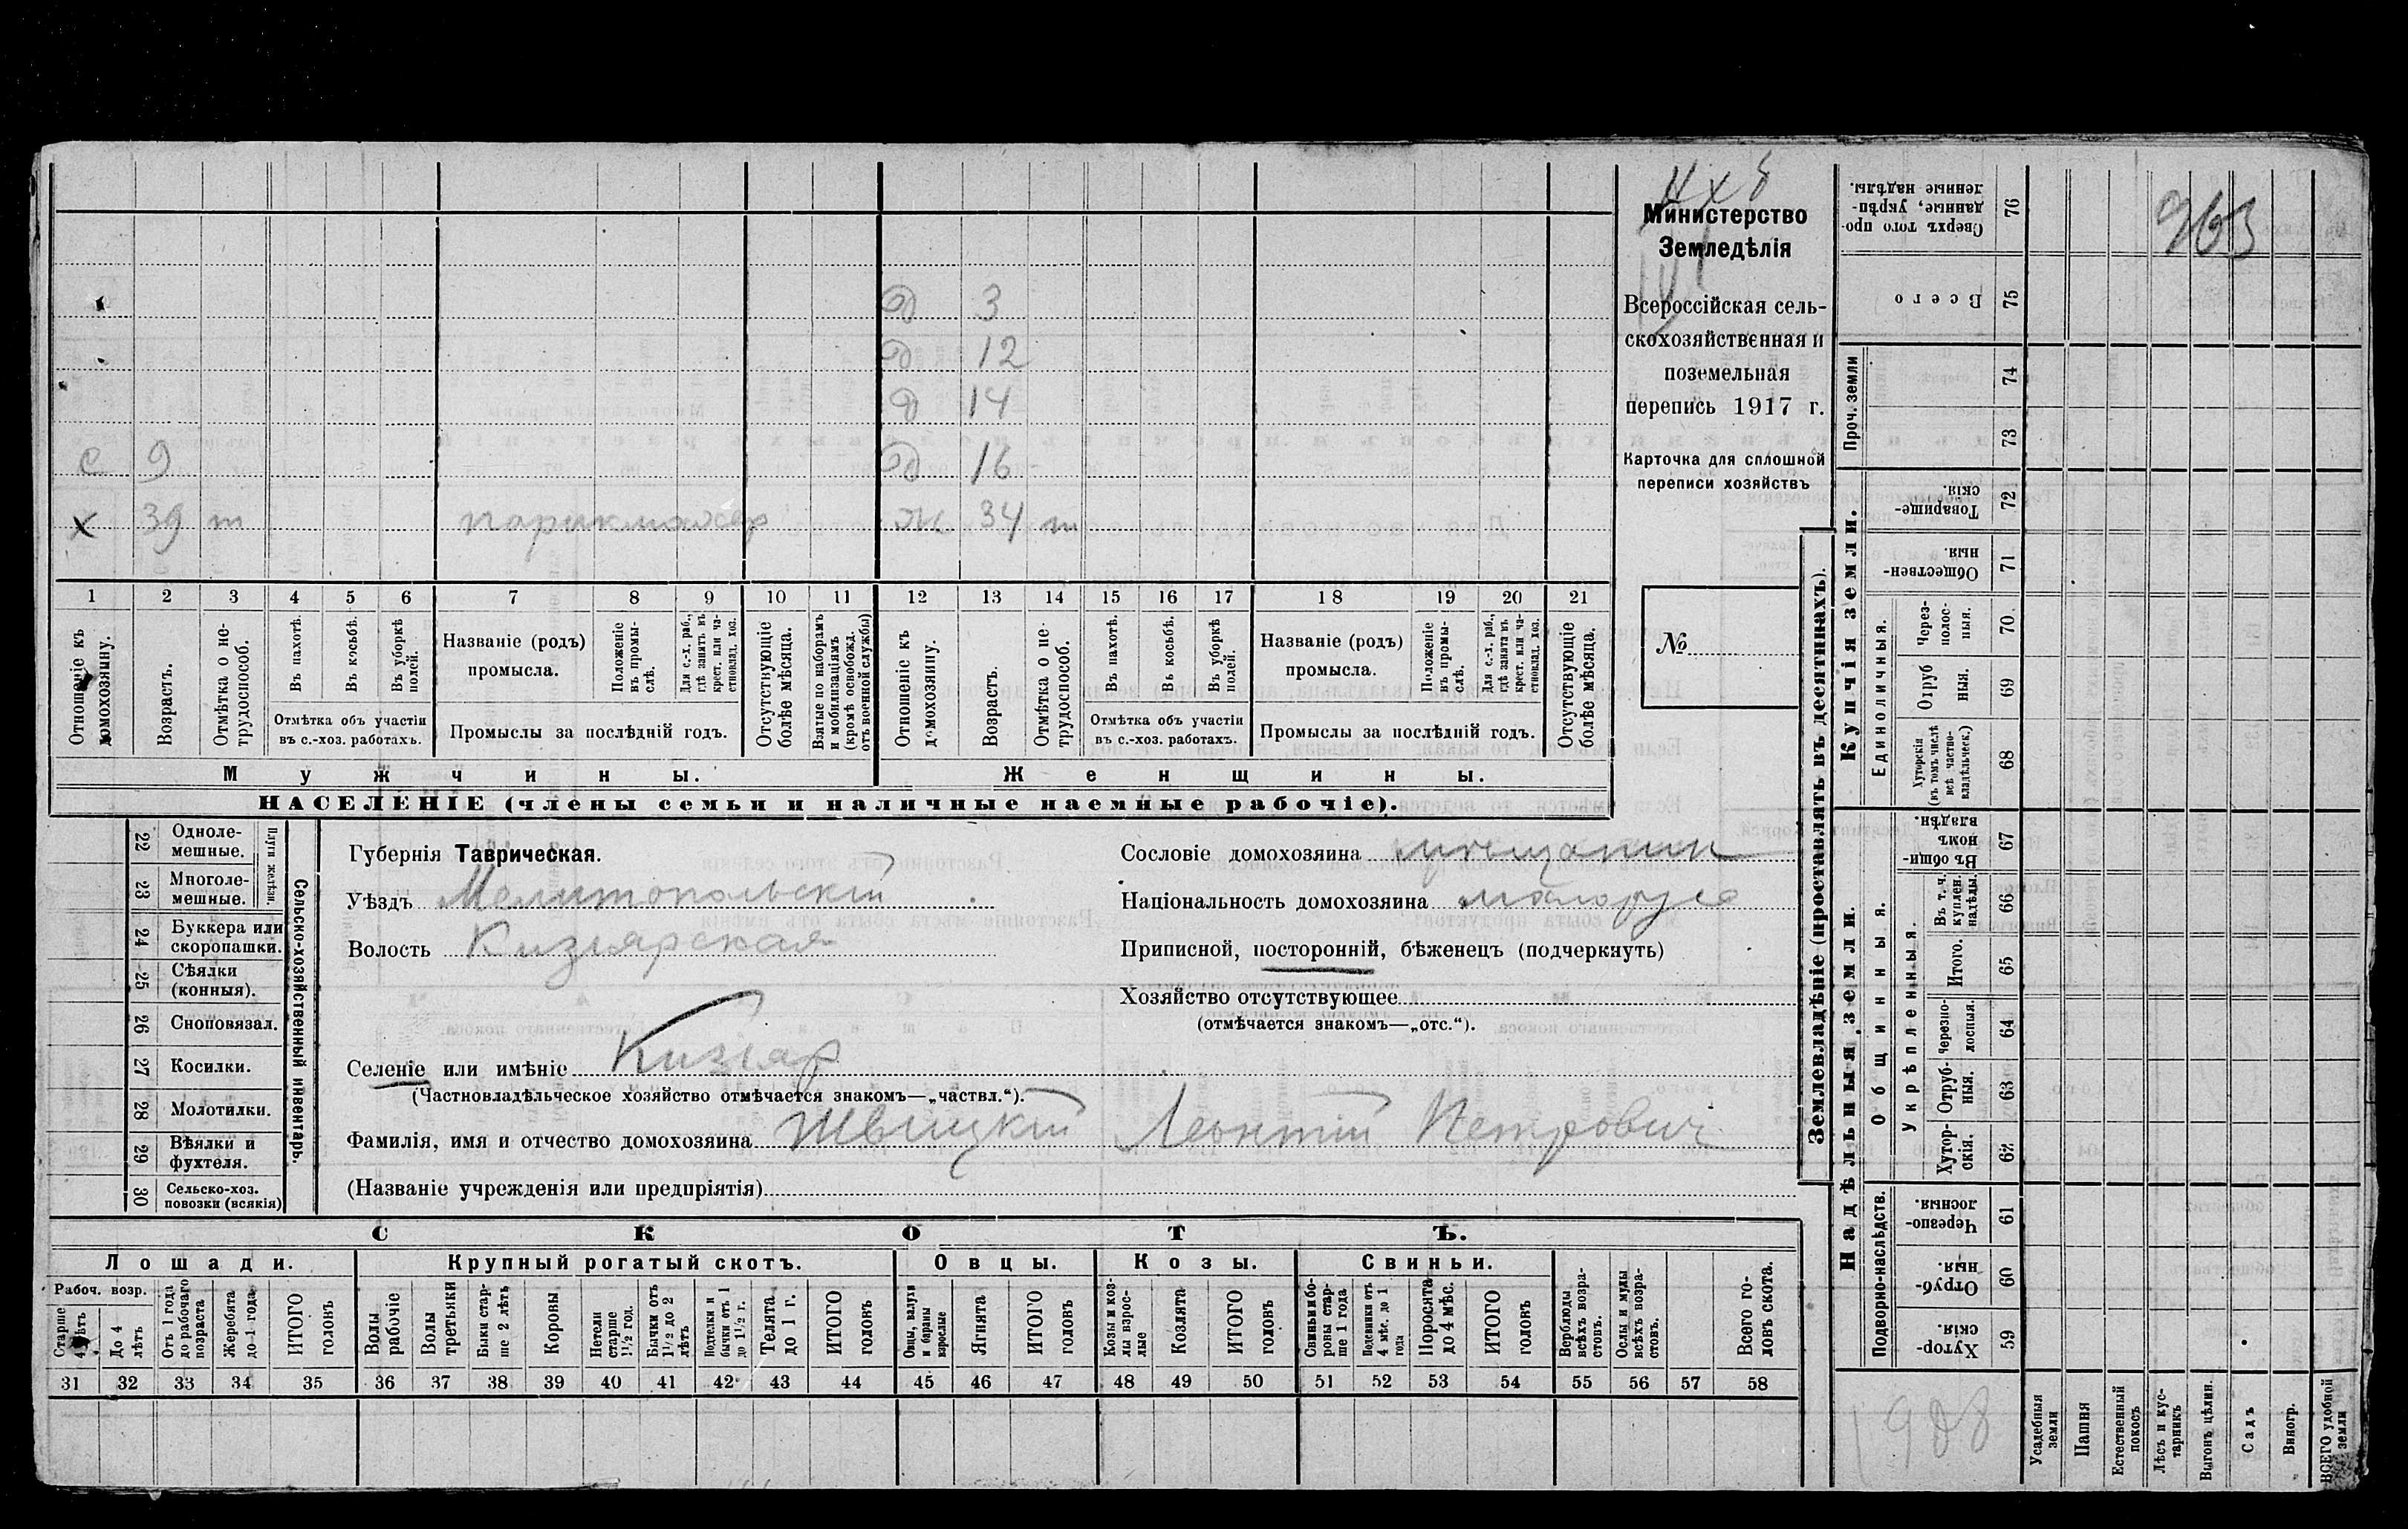 4 х 8
Министерство
Земледѣлія
Всероссійская сель-
скохозяйственная и
поземельная
перепись 1917 г.
Карточка для сплошной
переписи хозяйствъ
№
963
Д 3
Д 12
Д 14
С 9 Д 16
х 39 т парикмахер Ж 34 т
1 2 3 4 5 6 7 8 9 10 11 12 13 14 15 16 17 18 19 20 21
Отношеніе къ домохозяину.
Возрастъ.
Отмѣтка о не-трудоспособ.
Въ пахотѣ.
Въ косьбѣ.
Въ уборкѣ полей.
Отмѣтка объ участіи
въ с.-хоз. работахъ.
Названіе (родъ)
промысла.
Положеніе въ промы-слѣ.
Для с.-х. раб., гдѣ занятъ въ крест. или ча-стновлад. хоз.
Промыслы за послѣдній годъ.
Отсутствующіе болѣе мѣсяца.
Взятые по наборамъ и мобилизаціямъ (кромѣ освобожд. отъ военной службы)
Отношеніе къ домохозяину.
Возрастъ.
Отмѣтка о не-трудоспособ.
Въ пахотѣ.
Въ косьбѣ.
Въ уборкѣ полей.
Отмѣтка объ участіи
въ с.-хоз. работахъ.
Названіе (родъ)
промысла.
Положеніе въ промы-слѣ.
Для с.-х. раб., гдѣ занята въ крест. или ча-стновлад. хоз.
Промыслы за послѣдній годъ.
Отсутствующіе болѣе мѣсяца.
Мужчины. Женщины.
НАСЕЛЕНІЕ (члены семьи и наличные наемные рабочіе).
22 Одноле-мешные.
23 Многоле-мешные.
Плуги желѣзн.
24 Буккера или скоропашки.
25 Сѣялки (конныя).
26 Сноповязал.
27 Косилки.
28 Молотилки.
29 Вѣялки и фухтеля.
30 Сельско-хоз. повозки (всякія)
Сельско-хозяйственный инвентарь.
Губернія Таврическая.
Уѣздъ Мелитопольскій
Волость Кизіярская
Селеніе или имѣніе Кизіяр
(Частновладѣльческое хозяйство отмѣчается знакомъ—„частвл.“).
Фамилія, имя и отчество домохозяина Швицкій Леонтій Петрович
(Названіе учрежденія или предпріятія)
Сословіе домохозяина мѣщанин
Національность домохозяина малорусс
Приписной, посторонній, бѣженецъ (подчеркнуть)
Хозяйство отсутствующее
(отмѣчается знакомъ—„отс.“).
СКОТЪ.
Лошади. Крупный рогатый скотъ. Овцы. Козы. Свиньи.
Рабоч. возр.
Старше 4 лѣтъ
До 4 лѣтъ
Отъ 1 года до рабочаго возраста
Жеребята до 1 года
ИТОГО головъ
Волы рабочіе
Волы третьяки
Быки стар-ше 2 лѣтъ
Коровы
Нетели старше 1½ год.
Бычки отъ 1½ до 2 лѣтъ
Подтелки и бычки отъ 1 до 1½ г.
Телята до 1 г.
ИТОГО головъ
Овцы, валухи и бараны взрослые
Ягнята
ИТОГО головъ
Козы и коз-лы взрос-лые
Козлята
ИТОГО головъ
Свиньи и бо-ровы стар-ше 1 года
Подсвинки отъ 4 мѣс. до 1 года
Поросята до 4 мѣс.
ИТОГО головъ
Верблюды всѣхъ возра-стовъ.
Ослы и мулы всѣхъ возра-стовъ.
Всего го-ловъ скота.
31 32 33 34 35 36 37 38 39 40 41 42 43 44 45 46 47 48 49 50 51 52 53 54 55 56 57 58
Землевладѣніе (проставлять въ десятинахъ).
Надѣльныя земли.
Купчія земли.
Проч. земли
Подворно-наслѣдств.
Общинныя.
Укрѣпленныя.
Единоличныя.
59 Хутор-скія.
60 Отруб-ныя.
61 Черезпо-лосныя.
62 Хутор-скія.
63 Отруб-ныя.
64 Черезпо-лосныя.
65 Итого.
66 Въ т. ч. куплен. надѣлы.
67 Въ общи-номъ владѣн.
68 Хуторскія (въ томъ числѣ всѣ частно-владѣльческ.)
69 Отруб ныя.
70 Через-полос-ныя.
71 Обществен-ныя.
72 Товарище-скія.
73
74
75 Всего
76 Сверхъ того про-данные, укрѣп-ленные надѣлы.
Усадебныя земли
Пашня
Естественный покосъ
Лѣсъ и кус-тарникъ
Выгонъ цѣлин.
Садъ
Виногр.
ВСЕГО удобной земли
908